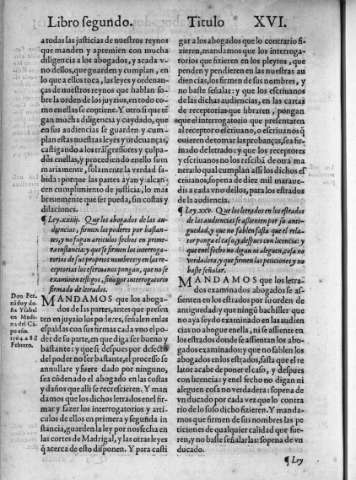 Libro segundo. Titulo XVI.
a todas las justicias de nuestros reynos
que manden y apremien con mucha
diligencia a los abogados, y a cada v-
no dellos, que guarden y cumplan, en
lo que a ello toca, las leyes y ordenan-
ças de nuestros reynos que hablan so-
bre la orden de los juyzios, en todo co-
mo en ellas se contiene. Y otrosi que tē-
gan mucha diligencia y cuydado, que
en sus audiencias se guarden y cum-
plan estas nuestras leyes y ordenanças,
castigando a los trāsgressores y culpa-
dos en ellas, y procediendo en ello sum
mariamente, solamente la verdad sa-
bida: porque las partes ayan y alcan-
cen cumplimiento de justicia, lo mas
breuemente que ser pueda, sin costas y
dilaciones.
¶ Ley .xxiiij. Que los abogados de las au-
diencias, firmen los poderes por bastan-
tes, y no sigan articulos fechos en prime-
ra instancia: y que se firmen los interroga-
torios de sus propios nombres: y en las re-
ceptorias los escriuanos pongan, que no se
examinen testigos, sino por interrogatorio
firmado de letrados.
MANDAMOS que los aboga-
dos de las partes, antes que presen
ten en juyzio los poderes, señalen en las
espaldas con sus firmas cada vno el po-
der de su parte, en que diga ser bueno y
bastante: y que si despues por defecto
del poder no ser bastante, el processo se
annullare y fuere dado por ninguno,
sea cōdenado el abogado en las costas
y daños que alli se recrescieren. Y man
damos que los dichos letrados en el fir-
mar y fazer los interrogatorios y arti-
culos de ellos en primera y segunda in
stancia, guarden la ley por nos fecha en
las cortes de Madrigal, y las otras leyes
q̄ acerca de esto disponen. Y para casti
Don Fer-
nādo y do-
ña Ysabel
en Madrid
Febrero.
gar a los abogados que lo contrario fi-
zieren, mandamos que los interroga-
torios que fizieren en los pleytos, que
penden y pendieren en las nuestras au
diencias, los firmen de sus nombres, y
no baste señalar: y que los escriuanos
de las dichas audiencias, en las cartas
de receptorias que libraren, pongan
que el interrogatorio que presentaren
al receptor o escriuano, o escriuanos q̄
ouieren de tomar las prouanças, sea fir-
mado de letrados: y que los receptores
y escriuanos no los resciban de otra ma
nera: lo qual cumplan assi los dichos es-
criuanos, so pena de diez mil maraue-
dis a cada vno dellos, para los estrados
de la audiencia.
¶ Ley .xxv. Que los letrados en los estrados
de las audiencias se assienten por su anti-
guedad, y que no fablen fasta que el rela-
tor ponga el caso, y despues con licencia: y
que en el fecho no digan ni aleguen cosa no
verdadera, y que firmen las peticiones y no
baste señalar.
MANDAMOS que los letra-
dos examinados abogados se as-
sienten en los estrados por su orden de
antiguedad y que ningū bachiller que
no aya seydo examinado en las audien
cias no abogue en ella, ni se assiente en
los estrados donde se assientan los abo-
gados examinados: y que no fablen los
abogados en los estrados, fasta que el re
lator acabe de poner el caso, y despues
con licencia: y en el fecho no digan ni
aleguen cosa no verdadera: so pena de
vn ducado por cada vez que lo contra
rio de lo suso dicho fizieren. Y manda-
mos que firmen de sus nombres las pe
ticiones de qualquier calidad que fue-
ren, y no baste señalarlas: so pena de vn
ducado.
¶ Ley